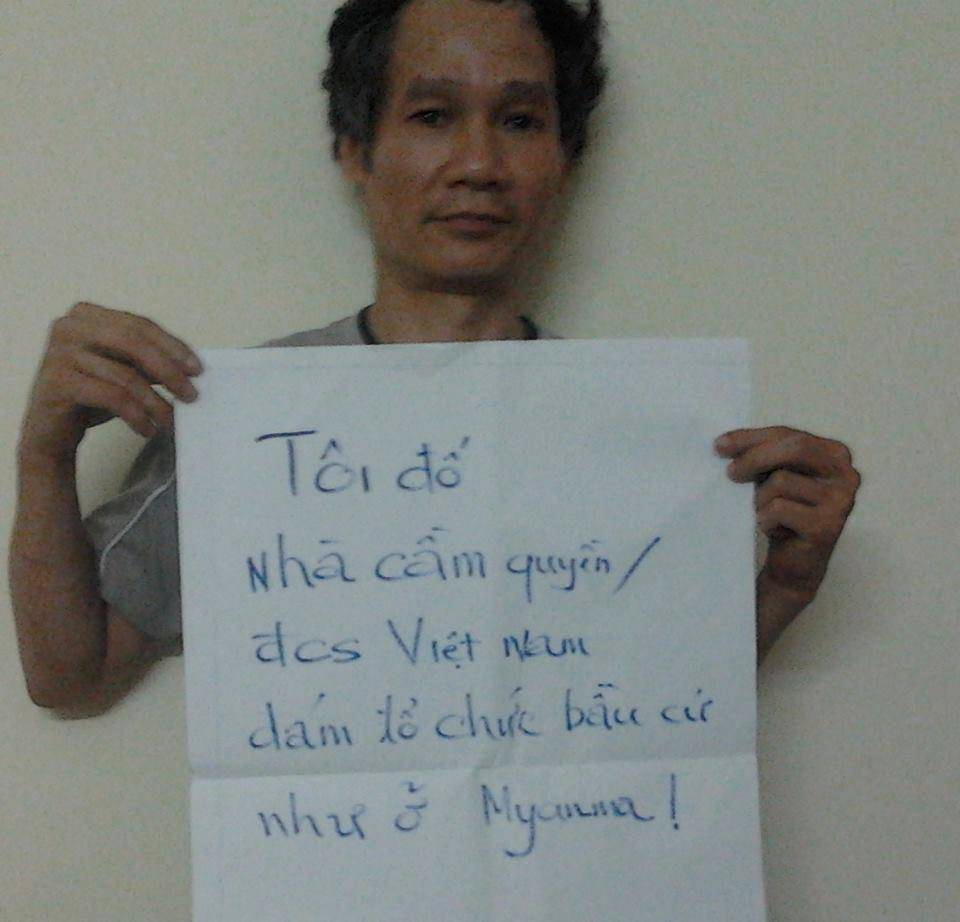 Tôi đố
Nhà cầm quyền/
đcs Việt Nam
dám tổ chức bầu cử
như ở Myanma!